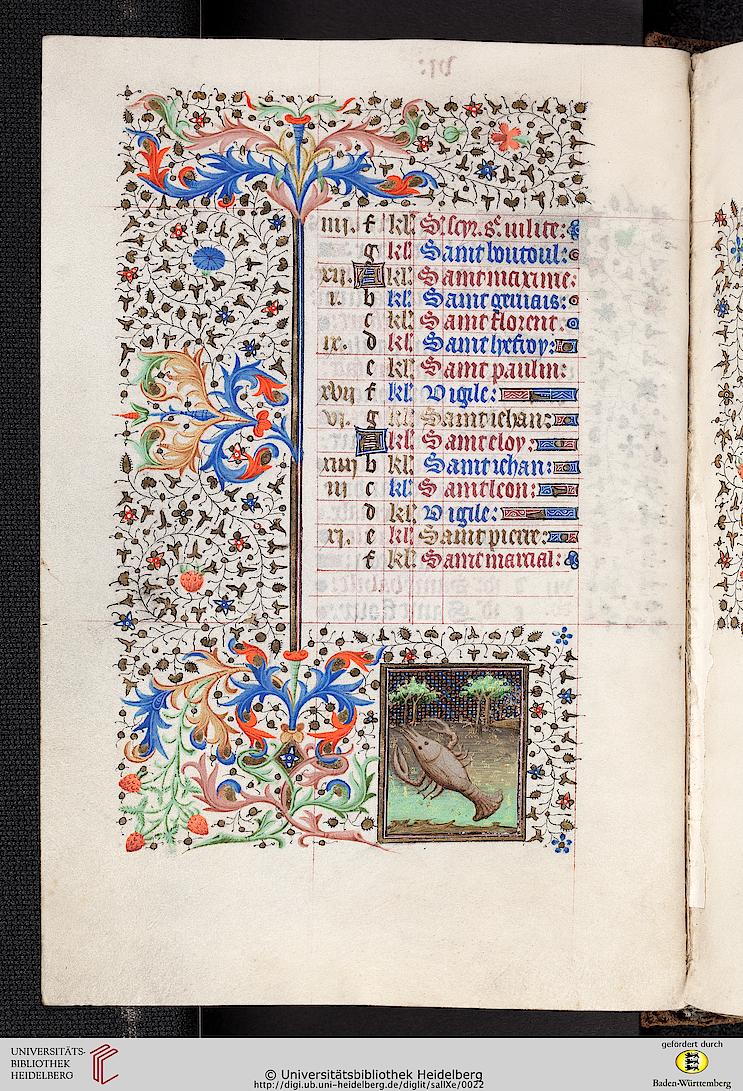 VI:
iiij. f kl' S' scyr. s' iulite:
g kl' Saint boutoul:
xij. A kl' Saint maxime:
i. b kl' Saint geruais:
c kl' Saint florent:
ix. d kl' Saint leffroy:
e kl' Saint paulin:
xvij f kl' Vigile:
vi. g kl' Saint iehan:
A kl' Saint eloy:
xiiij b kl' Saint iehan:
iij c kl' Saint leon:
d kl' Vigile:
xi. e kl' Saint pierre:
f kl' Saint marcial:
UNIVERSITÄTS-
BIBLIOTHEK
HEIDELBERG
© Universitätsbibliothek Heidelberg
http://digi.ub.uni-heidelberg.de/diglit/sallXe/0022
gefördert durch
Baden-Württemberg